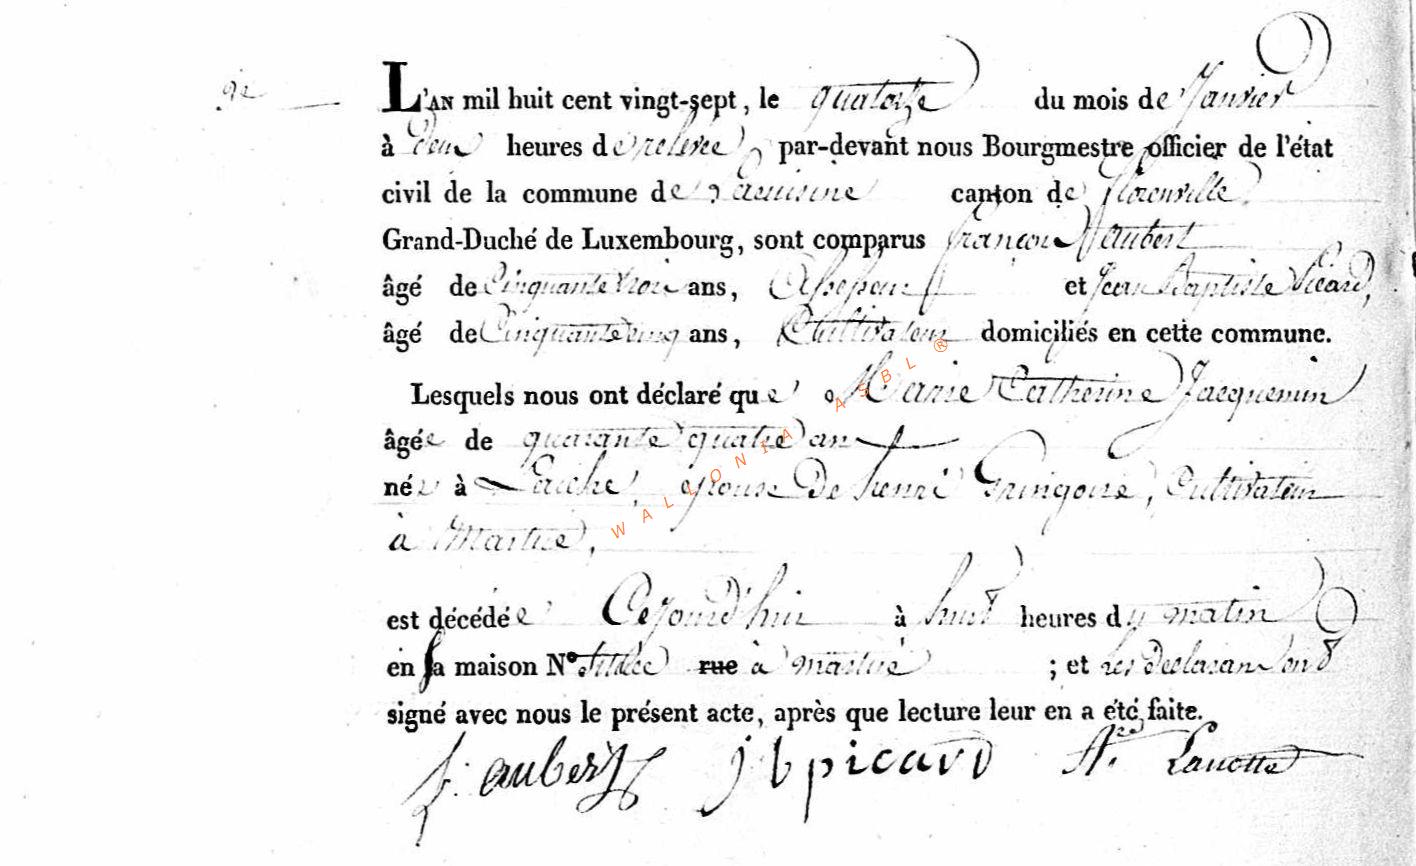 L'AN mil huit cent vingt-sept, le quatorze du mois de Janvier
à deux heures de relevée par-devant nous Bourgmestre officier de l'état
civil de la commune de Lacuisine canton de florenville
Grand-Duché de Luxembourg, sont comparus françois aubert
âgé de Cinquante trois ans, assesseur et Jean Baptiste Picard,
âgé de Cinquante cinq ans, Cultivateur domiciliés en cette commune.
Lesquels nous ont déclaré que Marie Catherine Jacquemin
âgée de quarante quatre ans
née à Laiche, épouse De henri Gringoire, Cultivateur
à Martué,
est décédée Cejourd'hui à huit heures du matin
en sa maison N° située rue à martué ; et les declarans ont
signé avec nous le présent acte, après que lecture leur en a été faite.
f. aubert j b picard Lanotte
WALLONIA ASBL ®